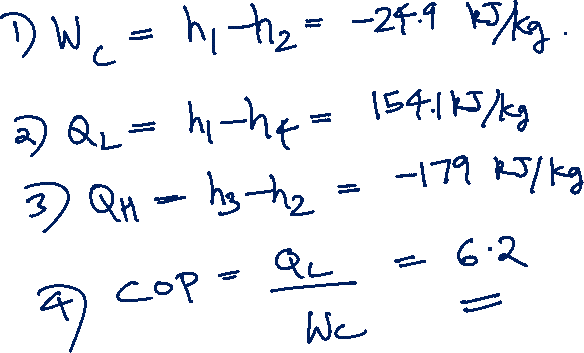 1) W_C = h_1 - h_2 = -24.9 kJ/kg.
2) Q_L = h_1 - h_4 = 154.1 kJ/kg
3) Q_H - h_3 - h_2 = -179 kJ/kg
4) COP = Q_L / W_C = 6.2